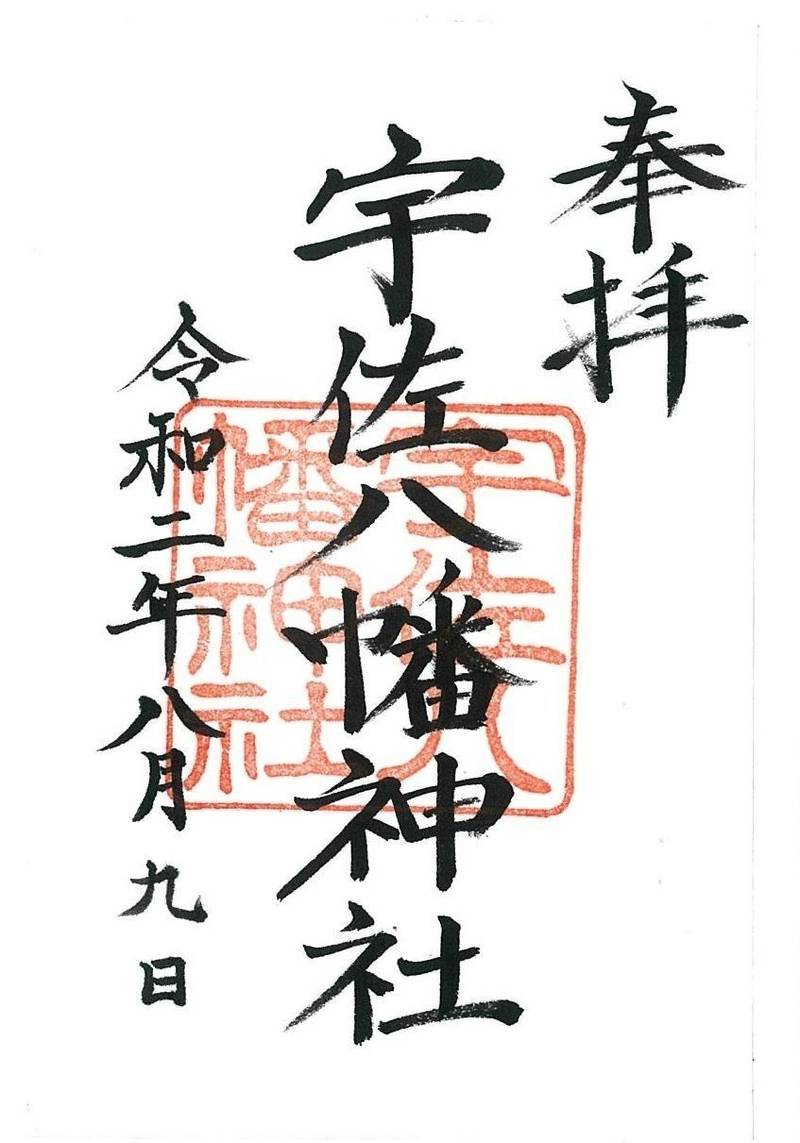 奉拝
宇佐八幡神社
令和二年八月九日
宇佐八
幡神社